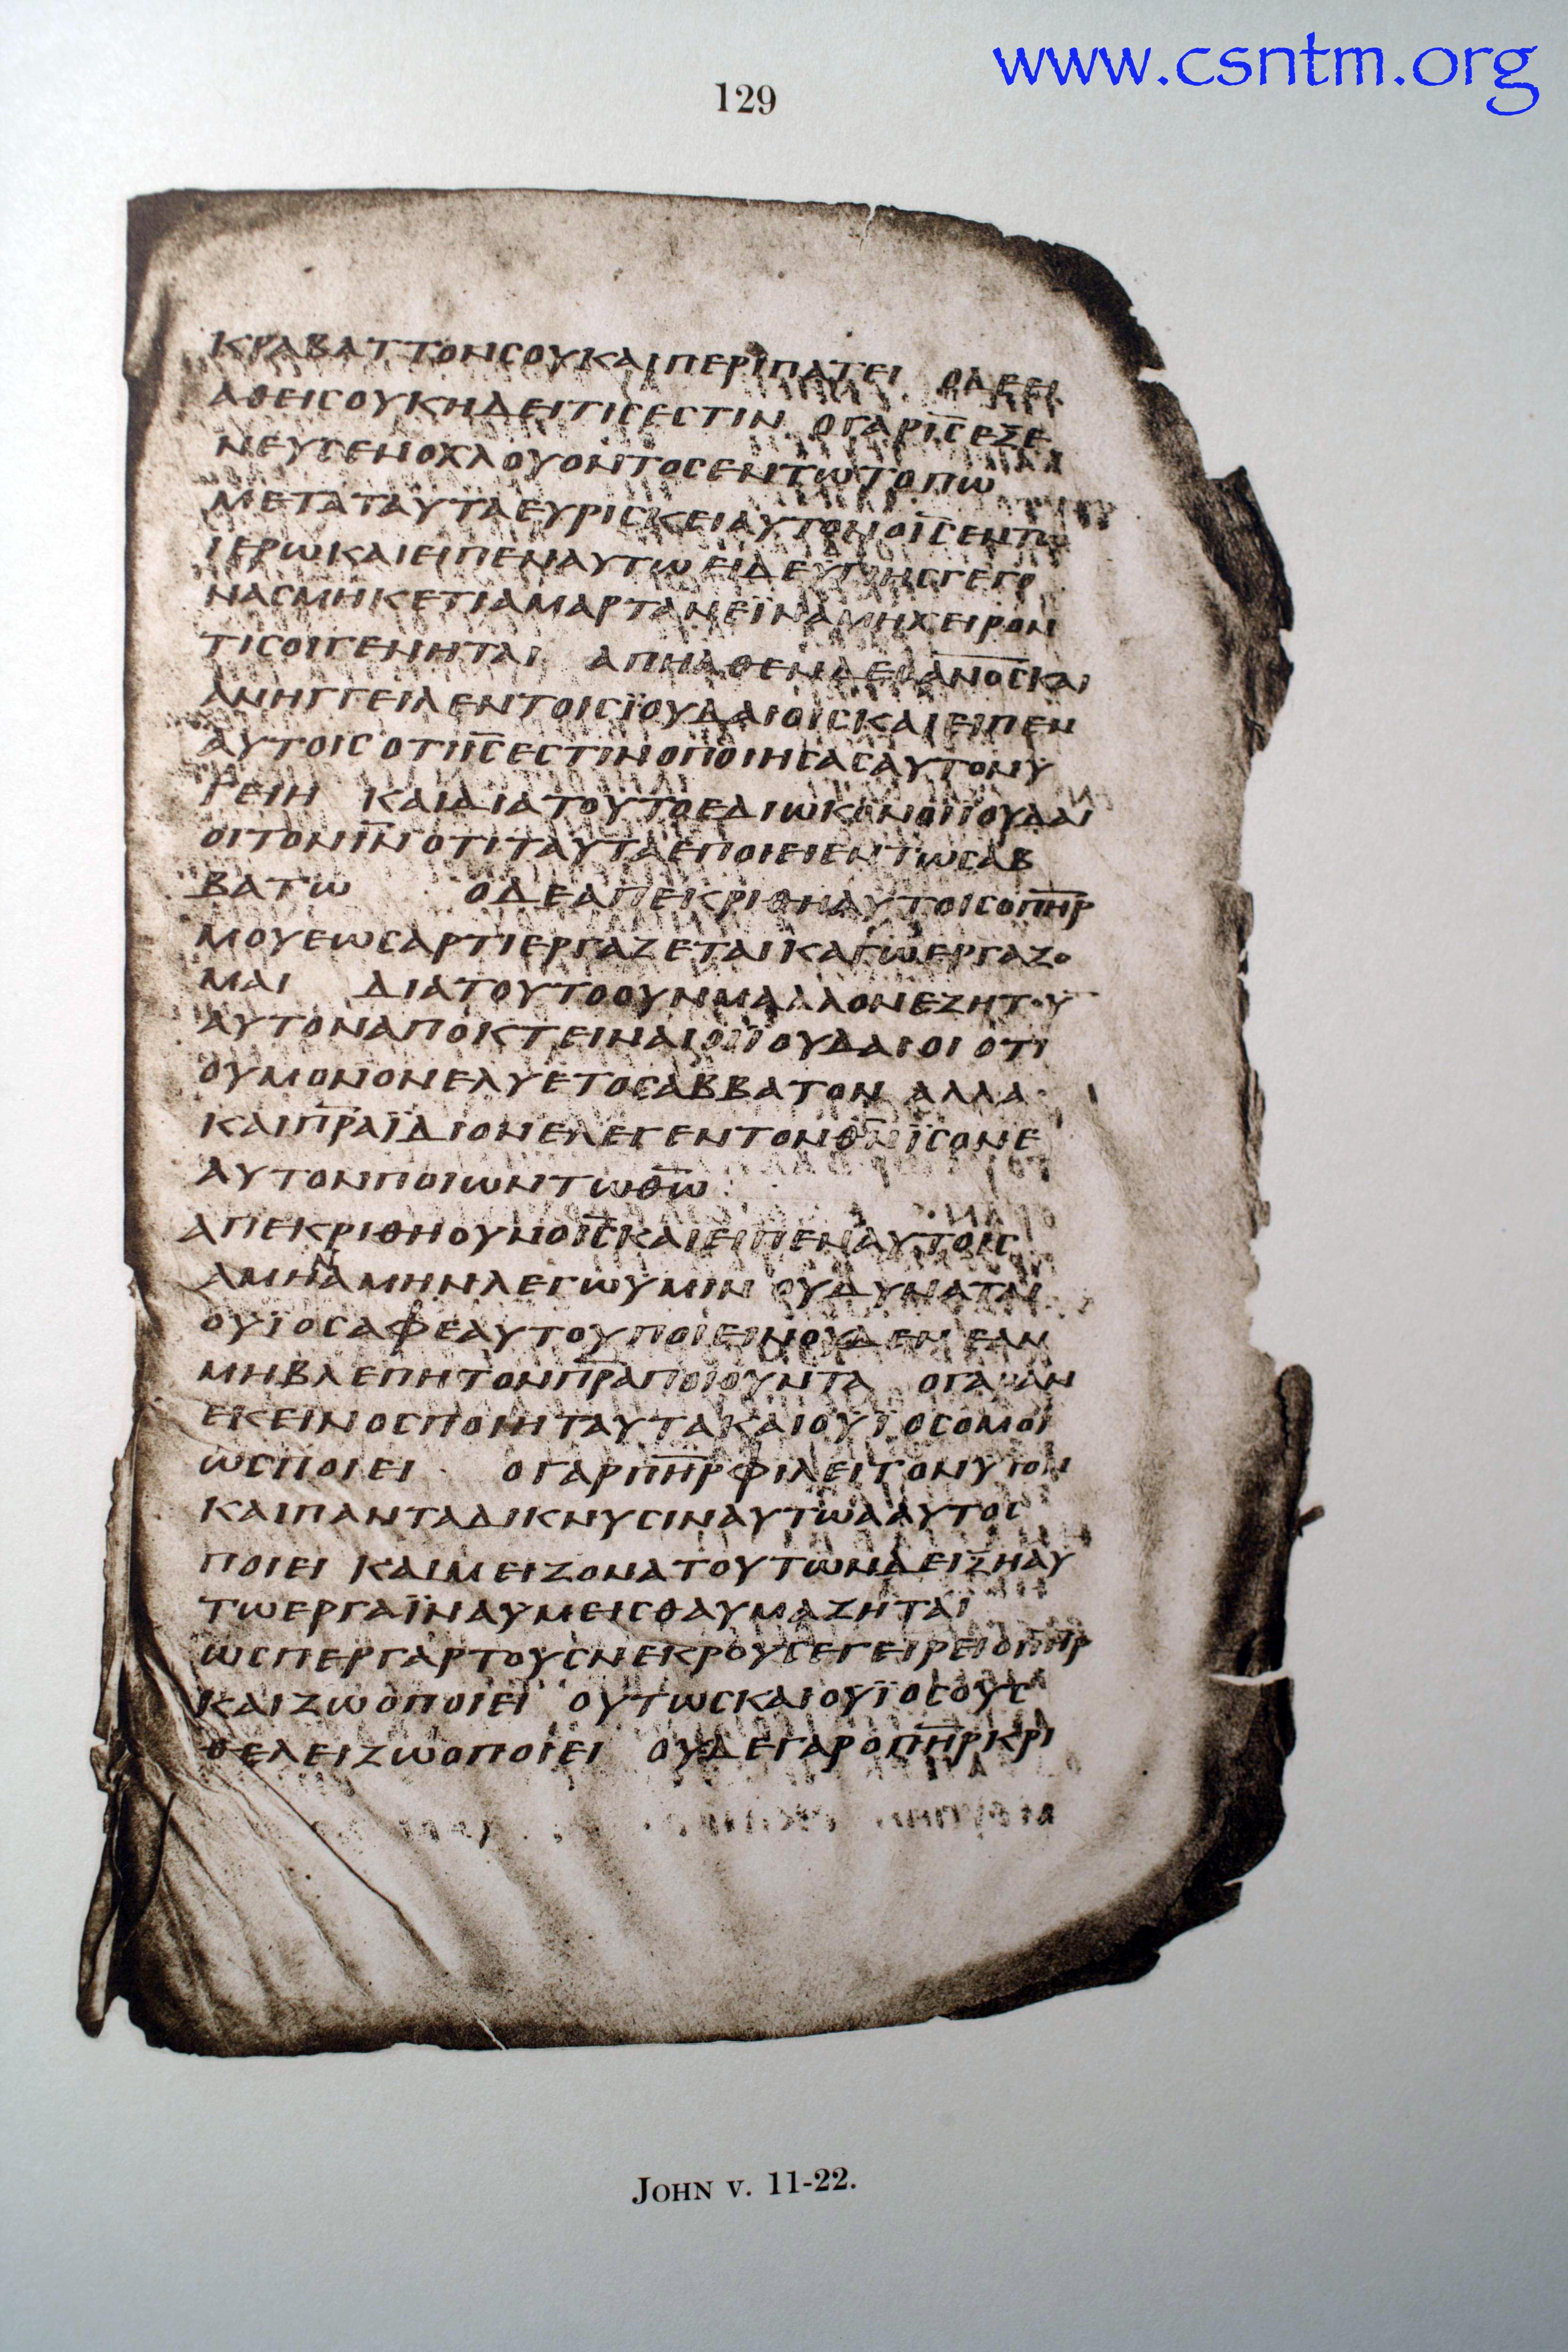 www.csntm.org
129
ΚΡΑΒΑΤΤΟΝϹΟΥΚΑΙΠΕΡΙΠΑΤΕΙ ΟΔΕΕΙ
ΑΘΕΙϹΟΥΚΗΔΕΙΤΙϹΕϹΤΙΝ ΟΓΑΡΙ̅Ϲ̅ΕΞΕ
ΝΕΥϹΕΝΟΧΛΟΥΟΝΤΟϹΕΝΤΩΤΟΠΩ
ΜΕΤΑΤΑΥΤΑΕΥΡΙϹΚΕΙΑΥΤΟΝΟΙ̅Ϲ̅ΕΝΤΩ
ΙΕΡΩΚΑΙΕΙΠΕΝΑΥΤΩ ΕΙΔΕΥΓΙΗϹΓΕΓΟ
ΝΑϹΜΗΚΕΤΙΑΜΑΡΤΑΝΕΪΝΑΜΗΧΕΙΡΟΝ
ΤΙϹΟΙΓΕΝΗΤΑΙ ΑΠΗΛΘΕΝΔΕΟΑ̅Ν̅Ο̅Ϲ̅ΚΑΙ
ΑΝΗΓΓΕΙΛΕΝΤΟΙϹΪΟΥΔΑΙΟΙϹΚΑΙΕΙΠΕΝ
ΑΥΤΟΙϹΟΤΙΙ̅Ϲ̅ΕϹΤΙΝΟΠΟΙΗϹΑϹΑΥΤΟΝΥ
ΓΕΙΗ ΚΑΙΔΙΑΤΟΥΤΟΕΔΙΩΚΟΝΟΙΪΟΥΔΑΙ
ΟΙΤΟΝΙ̅Ν̅ΟΤΙΤΑΥΤΑΕΠΟΙΕΙΕΝΤΩϹΑΒ
ΒΑΤΩ ΟΔΕΑΠΕΚΡΙΘΗΑΥΤΟΙϹΟΠ̅Η̅Ρ̅
ΜΟΥΕΩϹΑΡΤΙΕΡΓΑΖΕΤΑΙΚΑΓΩΕΡΓΑΖΟ
ΜΑΙ ΔΙΑΤΟΥΤΟΟΥΝΜΑΛΛΟΝΕΖΗΤΟΥ
ΑΥΤΟΝΑΠΟΚΤΕΙΝΑΙΟΙΪΟΥΔΑΙΟΙ ΟΤΙ
ΟΥΜΟΝΟΝΕΛΥΕΤΟϹΑΒΒΑΤΟΝ ΑΛΛΑ
ΚΑΙΠ̅Ρ̅Α̅ΪΔΙΟΝΕΛΕΓΕΝΤΟΝΘ̅Ν̅ΪϹΟΝΕ
ΑΥΤΟΝΠΟΙΩΝΤΩΘ̅Ω̅
ΑΠΕΚΡΙΘΗΟΥΝΟΙ̅Ϲ̅ΚΑΙΕΙΠΕΝΑΥΤΟΙϹ
ΑΜΗΝΑΜΗΝΛΕΓΩΥΜΙΝ ΟΥΔΥΝΑΤΑΙ
ΟΥΪΟϹΑΦΕΑΥΤΟΥΠΟΙΕΙΝΟΥΔΕΝ ΕΑΝ
ΜΗΒΛΕΠΗΤΟΝΠ̅Ρ̅Α̅ΠΟΙΟΥΝΤΑ ΟΓΑΡΑΝ
ΕΚΕΙΝΟϹΠΟΙΗΤΑΥΤΑΚΑΙΟΥΪΟϹΟΜΟΙ
ΩϹΠΟΙΕΙ ΟΓΑΡΠ̅Η̅Ρ̅ΦΙΛΕΙΤΟΝΥΙΟΝ
ΚΑΙΠΑΝΤΑΔΙΚΝΥϹΙΝΑΥΤΩΑΑΥΤΟϹ
ΠΟΙΕΙ ΚΑΙΜΕΙΖΟΝΑΤΟΥΤΩΝΔΕΙΞΗΑΥ
ΤΩΕΡΓΑΪΝΑΥΜΕΙϹΘΑΥΜΑΖΗΤΑΙ
ΩϹΠΕΡΓΑΡΤΟΥϹΝΕΚΡΟΥϹΕΓΕΙΡΕΙΟΠ̅Η̅Ρ̅
ΚΑΙΖΩΟΠΟΙΕΙ ΟΥΤΩϹΚΑΙΟΥΪΟϹΟΥϹ
ΘΕΛΕΙΖΩΟΠΟΙΕΙ ΟΥΔΕΓΑΡΟΠ̅Η̅Ρ̅ΚΡΙ
JOHN V. 11-22.